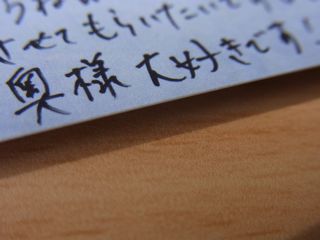 させてもらいたいです
奥様大好きです!